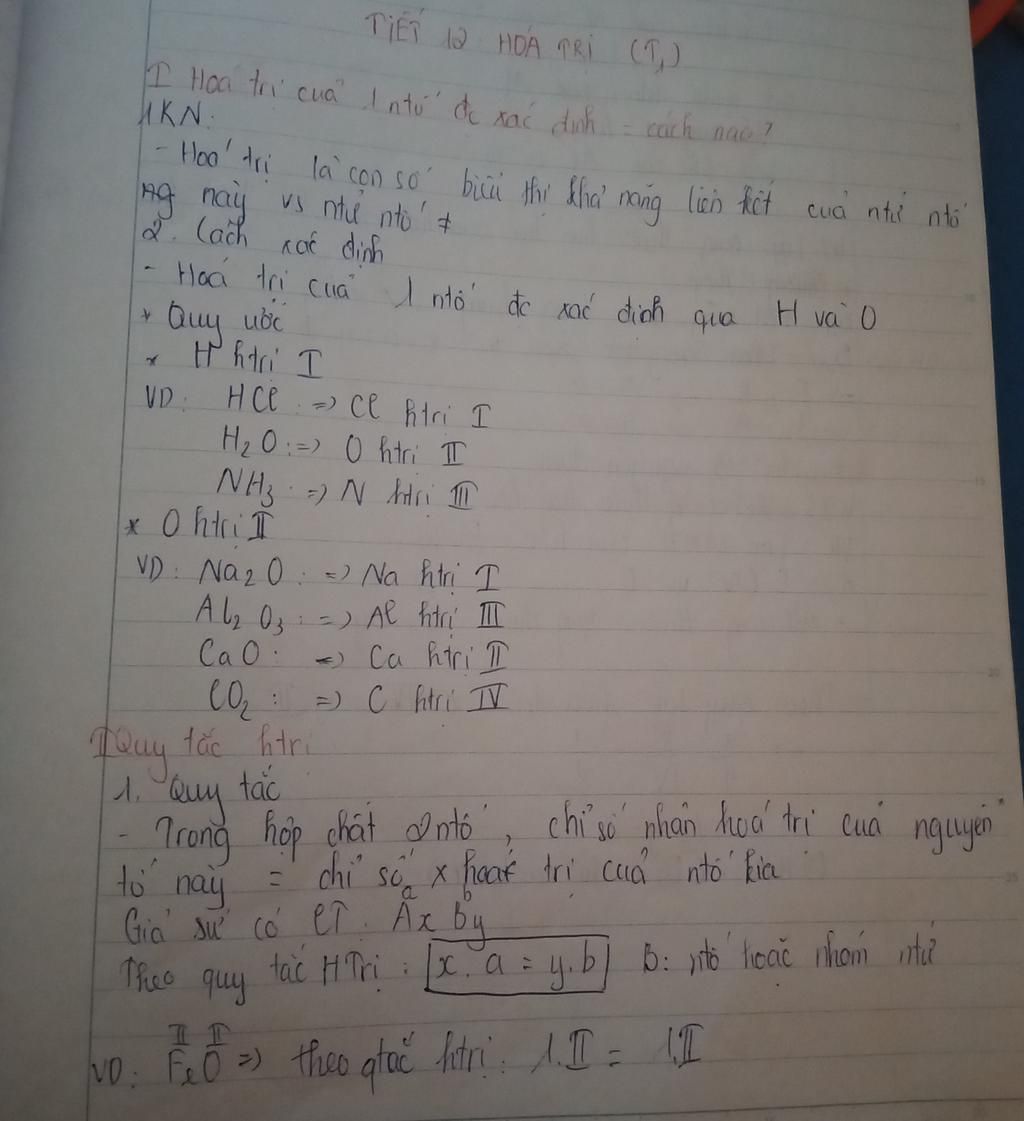 TIẾT 12 HOÁ TRỊ (T1)
I Hoá trị cuả 1 ntố đc xác định = cách nào?
1KN:
- Hoá trị là con số biểu thị khả năng liên kết cuả ntử ntố
này vs ntử ntố ≠
2. Cách xác định
- Hoá trị cuả 1 ntố đc xác định qua H và O
* Quy ước
* H htrị I
VD: HCl :=> Cl htrị I
H2O :=> O htrị II
NH3 :=> N htrị III
* O htrị II
VD: Na2O :=> Na htrị I
Al2O3 :=> Al htrị III
CaO : => Ca htrị II
CO2 : => C htrị IV
II Quy tắc htrị
1. Quy tắc
- Trong hợp chất 2 ntố, chỉ số nhân hoá trị cuả nguyên
tố này = chỉ số x hoá trị cuả ntố kia
a b
Giả sử có CT: Ax By
Theo quy tắc HTrị : x.a = y.b B: ntố hoặc nhóm ntử
II II
VD: FeO => theo qtắc htrị: 1.II = 1.II